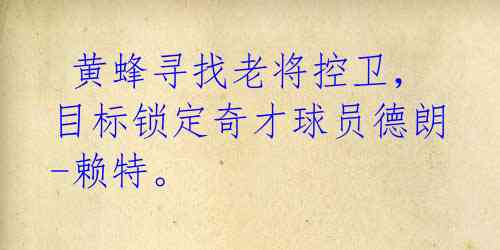 黄蜂寻找老将控卫，
目标锁定奇才球员德朗
-赖特。